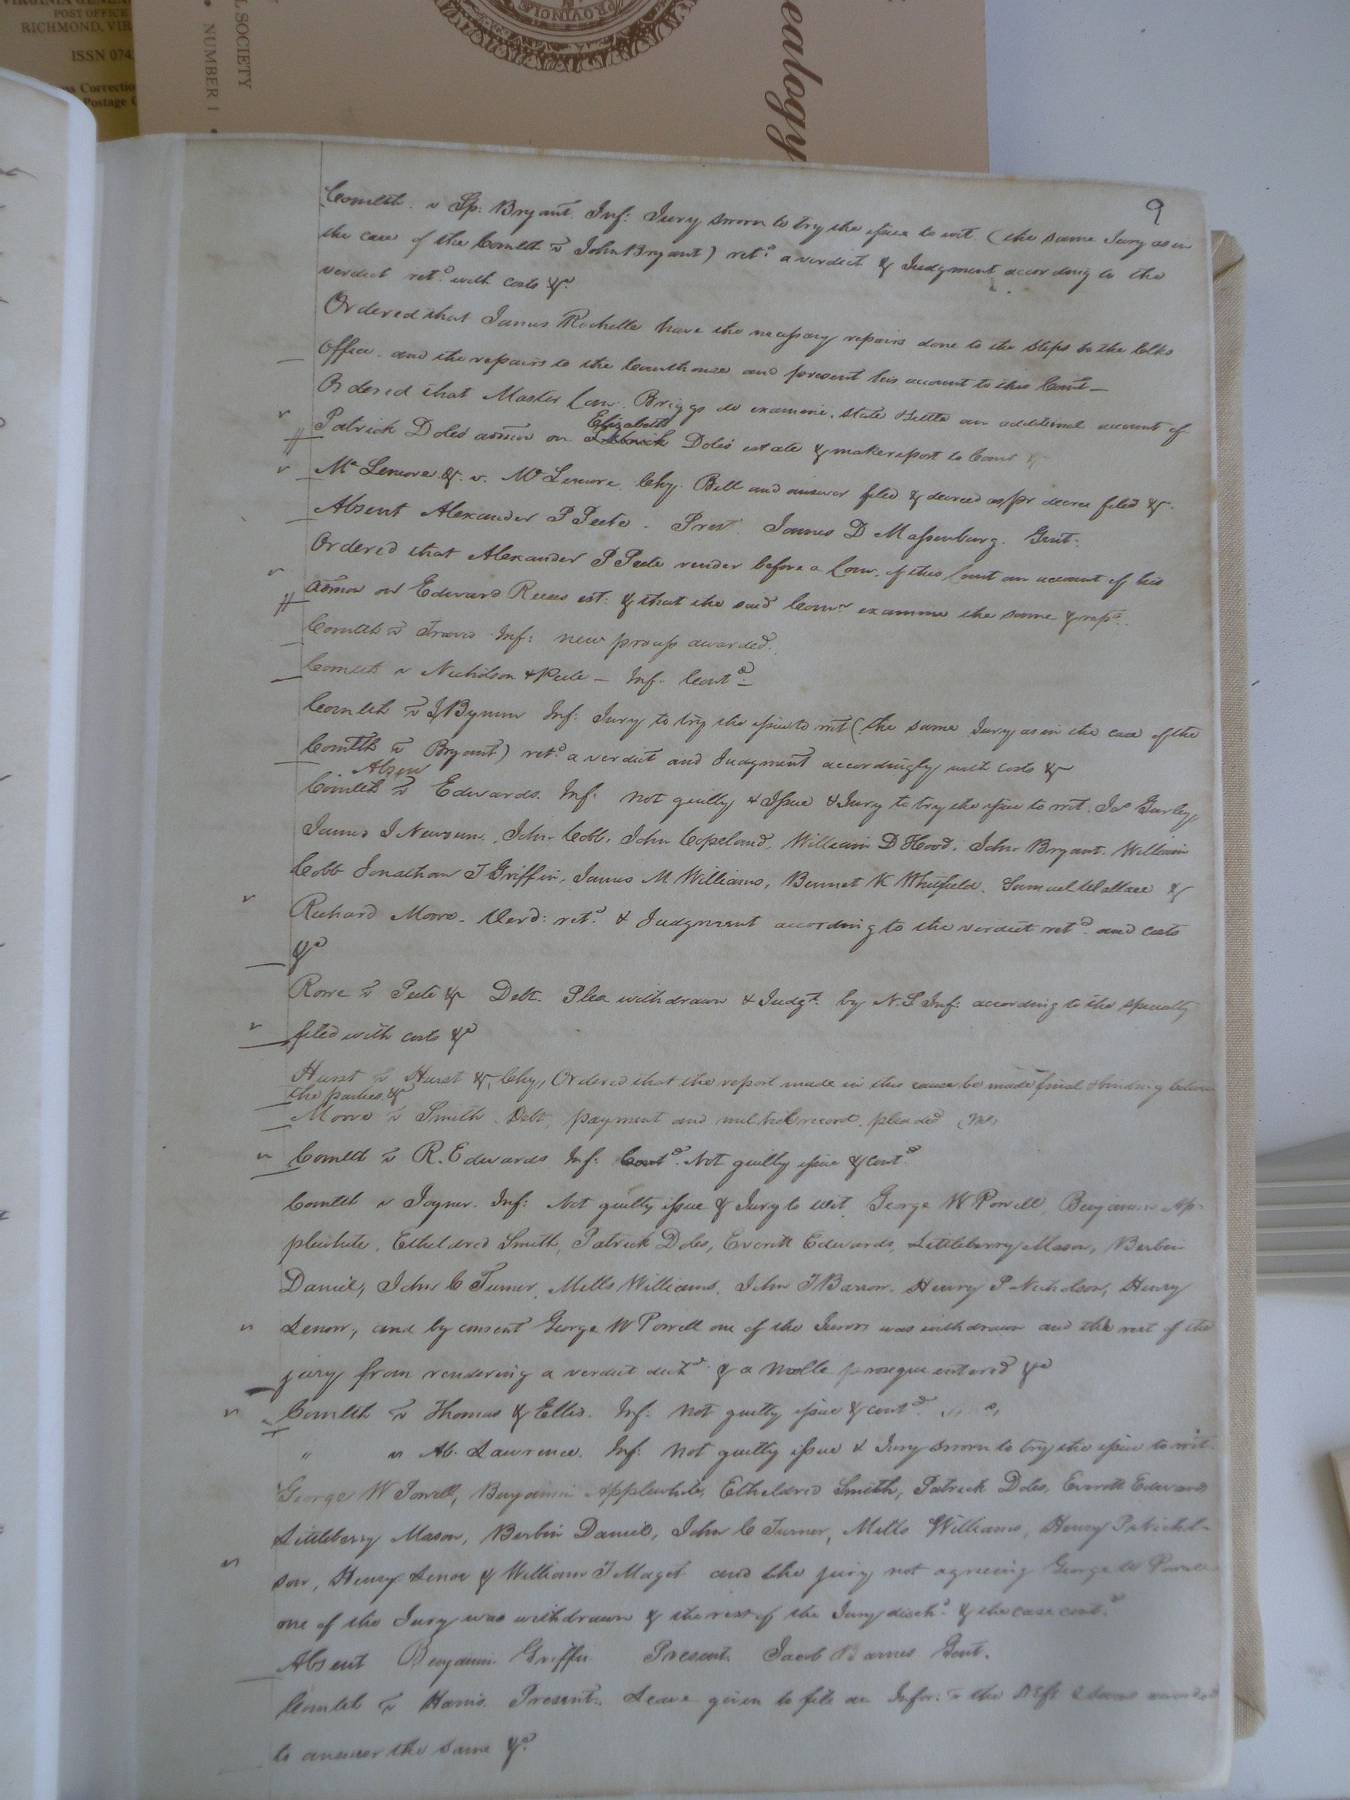 VIRGINIA GENEA
POST OFFICE
RICHMOND, VIR
ISSN 074
ss Correctio
Postage
L SOCIETY
NUMBER 1
PROVINCIÆ
ealogy
9
Comlth. v Sp: Bryant. Inf: Jury sworn to try the issue to wit (the same Jury as in
the case of the Comlth v John Bryant) retd. a verdict & Judgment according to the
verdict retd. with costs &c.
Ordered that James Rochelle have the necessary repairs done to the steps to the Clks
Office. and the repairs to the Courthouse and present his account to this Court—
Ordered that Master Com. Briggs do examine, state & settle an additional account of
Elizabeth
Patrick Doles admon on Doles estate & make report to Court
McLemore &c. v. McLemore. Chy. Bill and answer filed & decreed as pr decree filed &c.
Absent Alexander P Peete. Prest. James D Massenburg. Gent.
Ordered that Alexander P Peete render before a Com. of this Court an account of his
admon on Edward Reeses est: & that the said Comr. examine the same & rept.
Comlth v Travis Inf: new process awarded.
Comlth v Nicholson & Peete — Inf. Contd.—
Comlth v J Bynum Inf: Jury to try the issue to wit (the same Jury as in the case of the
Comlth v Bryant) retd. a verdict and Judgment accordingly with costs &c
Comlth v Edwards. Inf. not guilty & Issue & Jury to try the issue to wit. Jos Gurley,
James J Newsum, John Cobb, John Copeland, William D Hood, John Bryant. William
Cobb Jonathan T Griffin, James M Williams, Bennet K Whitfield, Samuel Wallace &
Richard Moore. Verd: retd. & Judgment according to the verdict retd. and costs
&c
Rowe v Peete &c Debt. Plea withdrawn & Judgt. by N.S Inf: according to the specialty
filed with costs &c
Hurst v Hurst &c, Chy, Ordered that the report made in this cause be made final & binding between
the parties &c
Moore v Smith. Debt, payment and nul tiel record pleaded
Comlth v R. Edwards Inf: Contd. Not guilty issue & contd
Comlth v Joyner. Inf: Not guilty issue & Jury to wit. George W Powell, Benjamin Ap-
plewhite, Etheldred Smith, Patrick Doles, Everett Edwards, Littleberry Mason, Berbin
Daniel, John C Turner, Mills Williams, John T Barrow, Henry P Nicholson, Henry
Lenow, and by consent George W Powell one of the Jurors was withdrawn and the rest of the
jury from rendering a verdict disch & a Nolle proseque entered &c
Comlth v Thomas & Ellis. Inf: Not guilty issue & contd.
" v Ab. Lawrence. Inf: Not guilty issue & Jury sworn to try the issue to wit.
George W Powell, Benjamin Applewhite, Etheldred Smith, Patrick Doles, Everett Edwards
Littleberry Mason, Berbin Daniel, John C Turner, Mills Williams, Henry P Nichol-
son, Henry Lenow & William T Maget and the jury not agreeing George W Powell
one of the Jury was withdrawn & the rest of the Jury disch. & the case contd.
Absent Benjamin Griffin Present Jacob Barnes Gent.
Comlth v Harris. Present. Leave given to file an Infor: v the Deft & sums awarded
to answer the same &c.